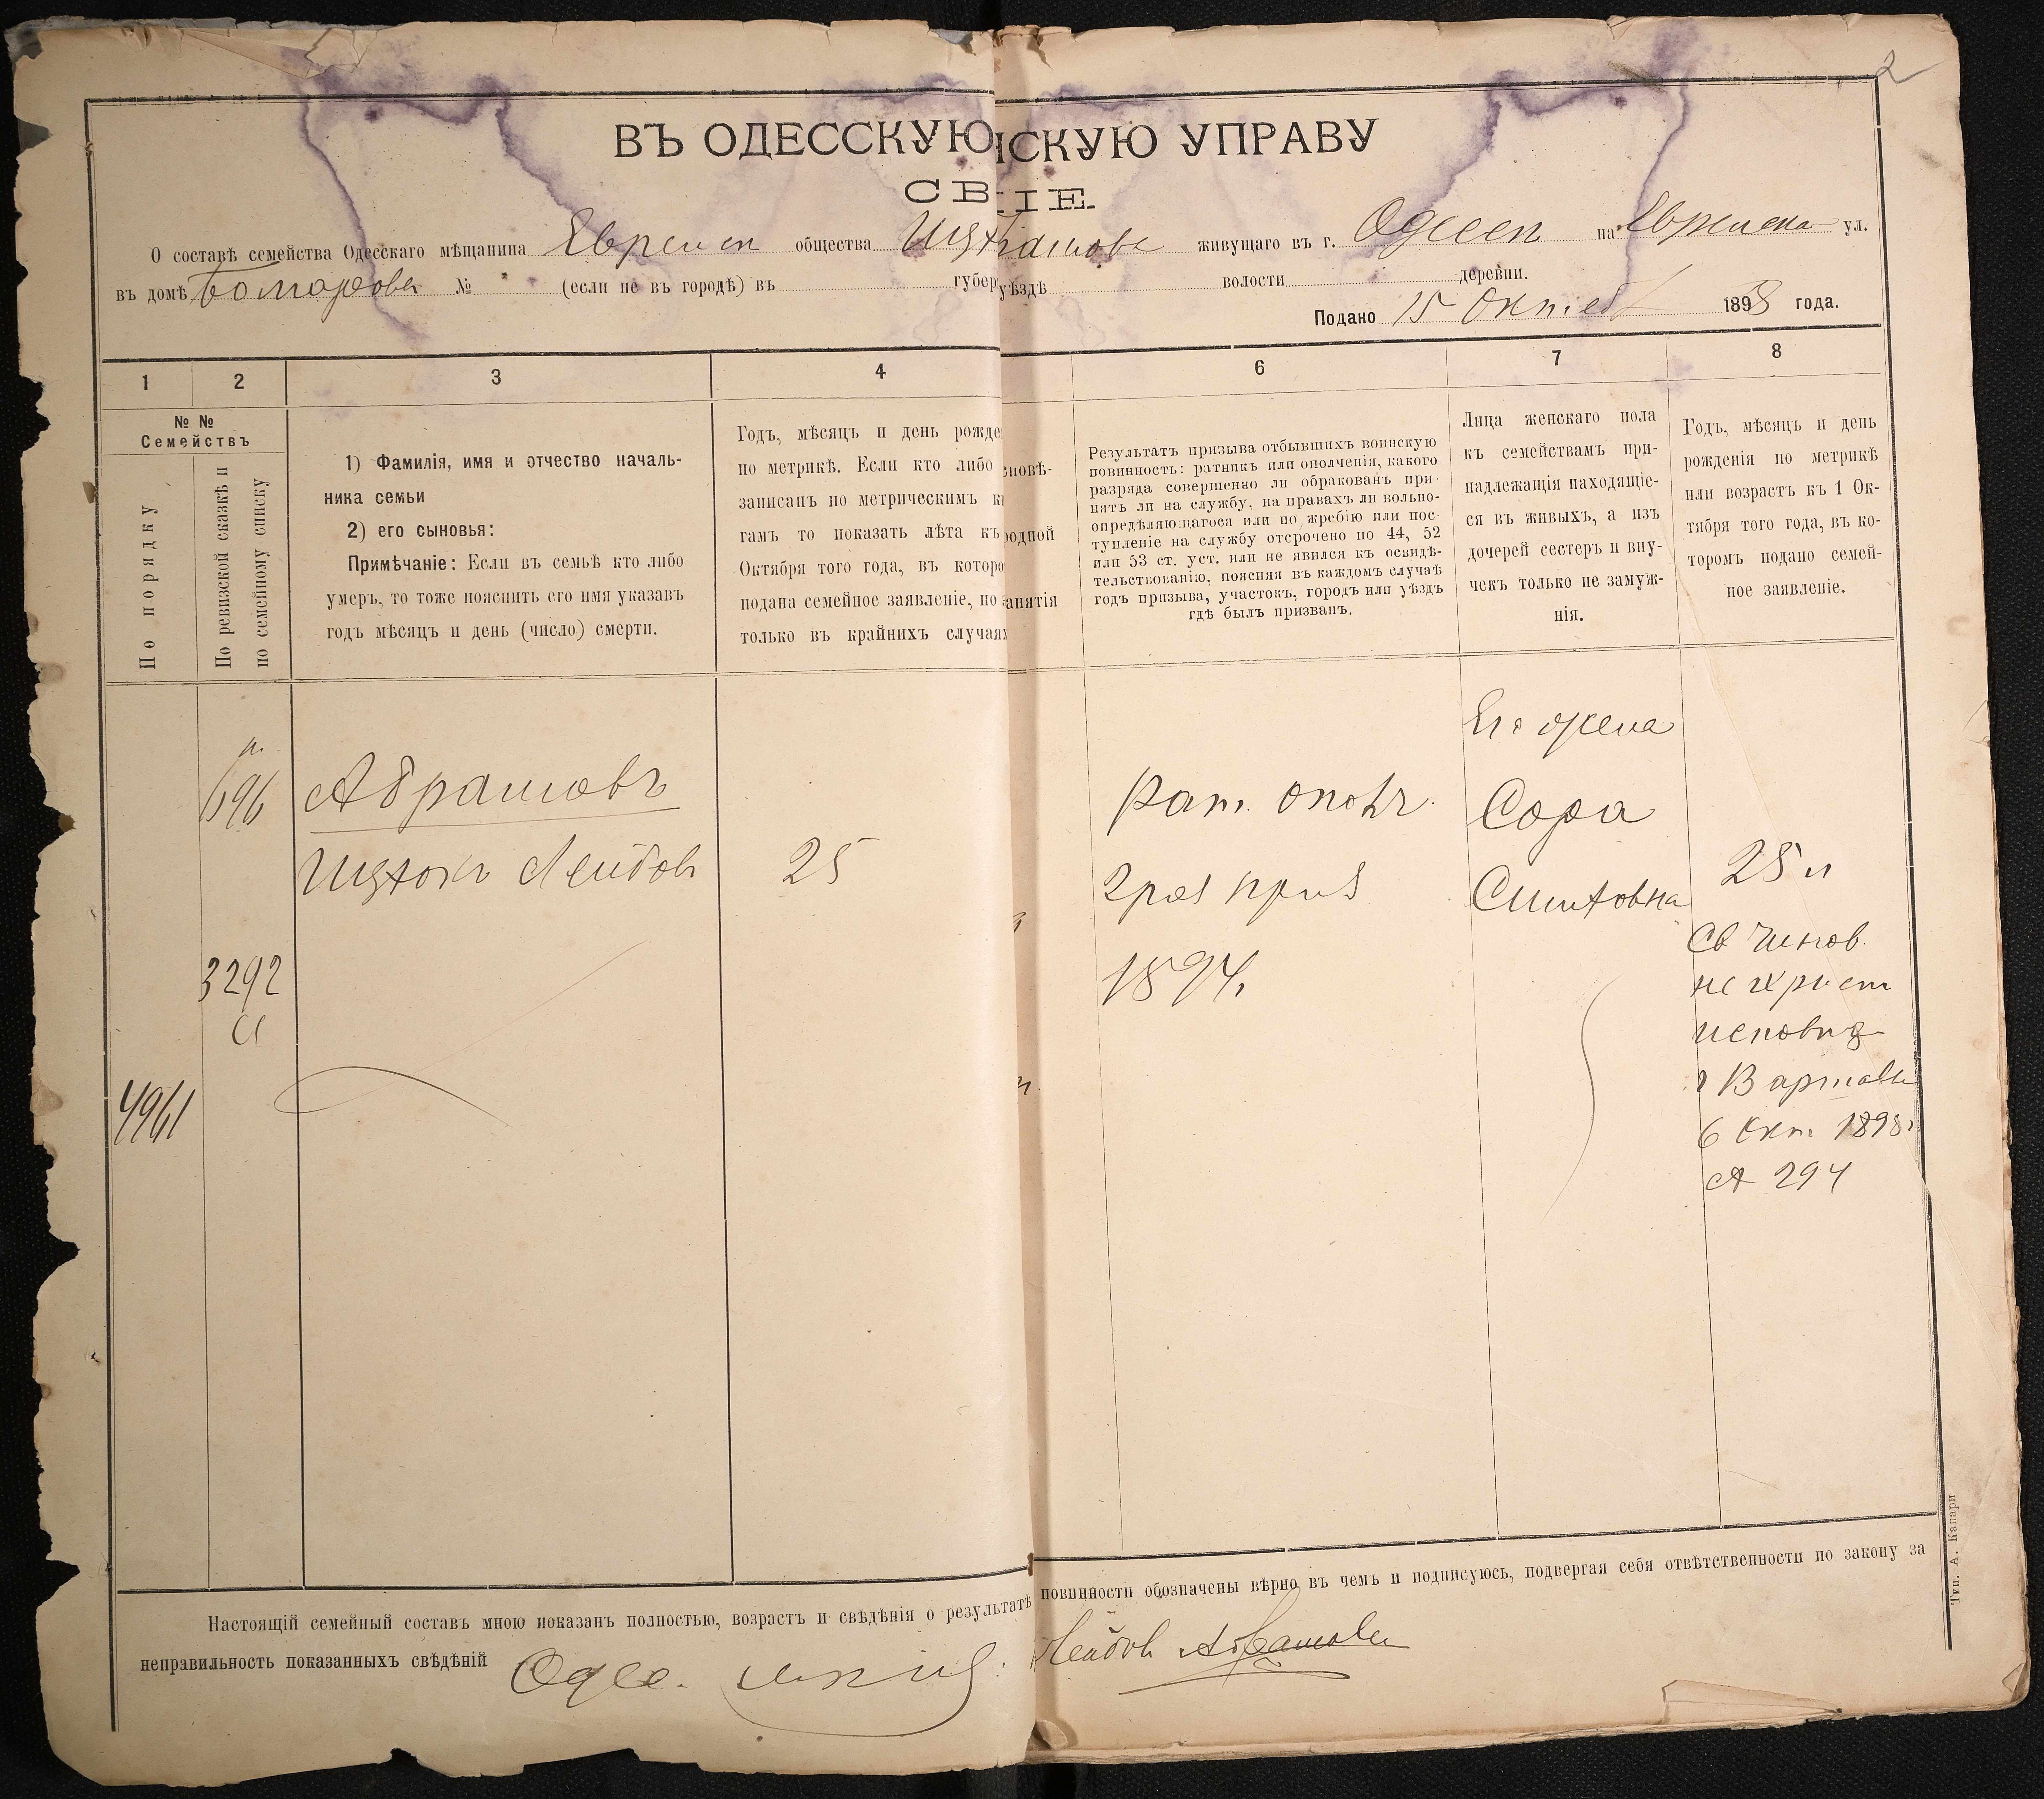 2
ВЪ ОДЕССКУЮ СКУЮ УПРАВУ
СВ ІЕ.
О составѣ семейства Одесскаго мѣщанина Евреиск общества живущаго въ г. Одессѣ на ул.
въ домѣ № (если не въ городѣ) въ губер уѣздѣ волости деревни.
Подано 15 1898 года.
1 2 3 4 6 7 8
№ №
Семействъ
По порядку
По ревизской сказкѣ и
по семейному списку
1) Фамилія, имя и отчество началь-
ника семьи
2) его сыновья:
Примѣчаніе: Если въ семьѣ кто либо
умеръ, то тоже пояснить его имя указавъ
годъ мѣсяцъ и день (число) смерти.
Годъ, мѣсяцъ и день рожде
по метрикѣ. Если кто либо
записанъ по метрическимъ к
гамъ то показать лѣта къ
Октября того года, въ которо
подана семейное заявленіе, но
только въ крайнихъ случая
повѣ-
родной
анятія
Результатъ призыва отбывшихъ воинскую
повинность: ратникъ или ополченія, какого
разряда совершенно ли обракованъ при-
нятъ ли на службу, на правахъ ли вольно-
опредѣляющагося или по жребію или пос-
тупленіе на службу отсрочено по 44, 52
или 53 ст. уст. или не явился къ освидѣ-
тельствованію, поясняя въ каждомъ случаѣ
годъ призыва, участокъ, городъ или уѣздъ
гдѣ былъ призванъ.
Лица женскаго пола
къ семействамъ при-
надлежащія находящіе-
ся въ живыхъ, а изъ
дочерей сестеръ и вну-
чекъ только не замуж-
нія.
Годъ, мѣсяцъ и день
рожденія по метрикѣ
или возрастъ къ 1 Ок-
тября того года, въ ко-
торомъ подано семей-
ное заявленіе.
696
Абрамовъ
Ицхокъ Лейбов
25
3292
4961
Рат. опол.
2 раз приз
1894.
Его жена
Сора
Симховна
25 л
Св Чинов.
не христ
исповѣд
г Варшавы
6 Окт. 1898
294
Настоящій семейный составъ мною показанъ полностью, возрастъ и свѣдѣнія о результатѣ повинности обозначены вѣрно въ чемъ и подписуюсь, подвергая себя отвѣтственности по закону за
неправильность показанныхъ свѣдѣній Одес. Лейбов Абрамов
Тип. А. Капари